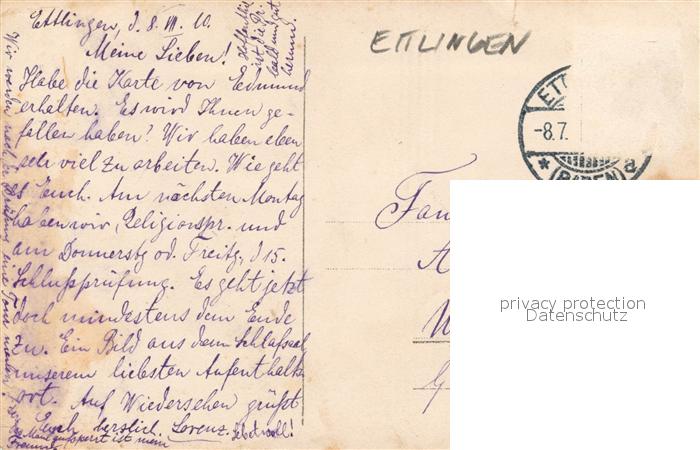 Ettlingen, d. 8. VII. 10.
Meine Lieben!
Habe die Karte von Edmund
erhalten. Es wird Ihnen ge-
fallen haben? Wir haben eben
sehr viel zu arbeiten. Wie geht
es Euch. Am nächsten Montag
haben wir, Religionspr. und
am Donnerstg od. Freitg, d 15.
Schlußprüfung. Es geht jetzt
doch mindestens dem Ende
zu. Ein Bild aus dem Schlafsaal
unserem liebsten Aufenthalts
ort. Auf Wiedersehen grüßt
Euch herzlich. Lorenz. Lebet wohl!
ist mein
Freund
Hoffentlich
ist die Pr.
bald und gut
herum.
Wir werden nach der Prüfung eine Tour machen
ETTLINGEN
ETT
-8.7.
* (BADEN) a
Fam
A
W
privacy protection
Datenschutz